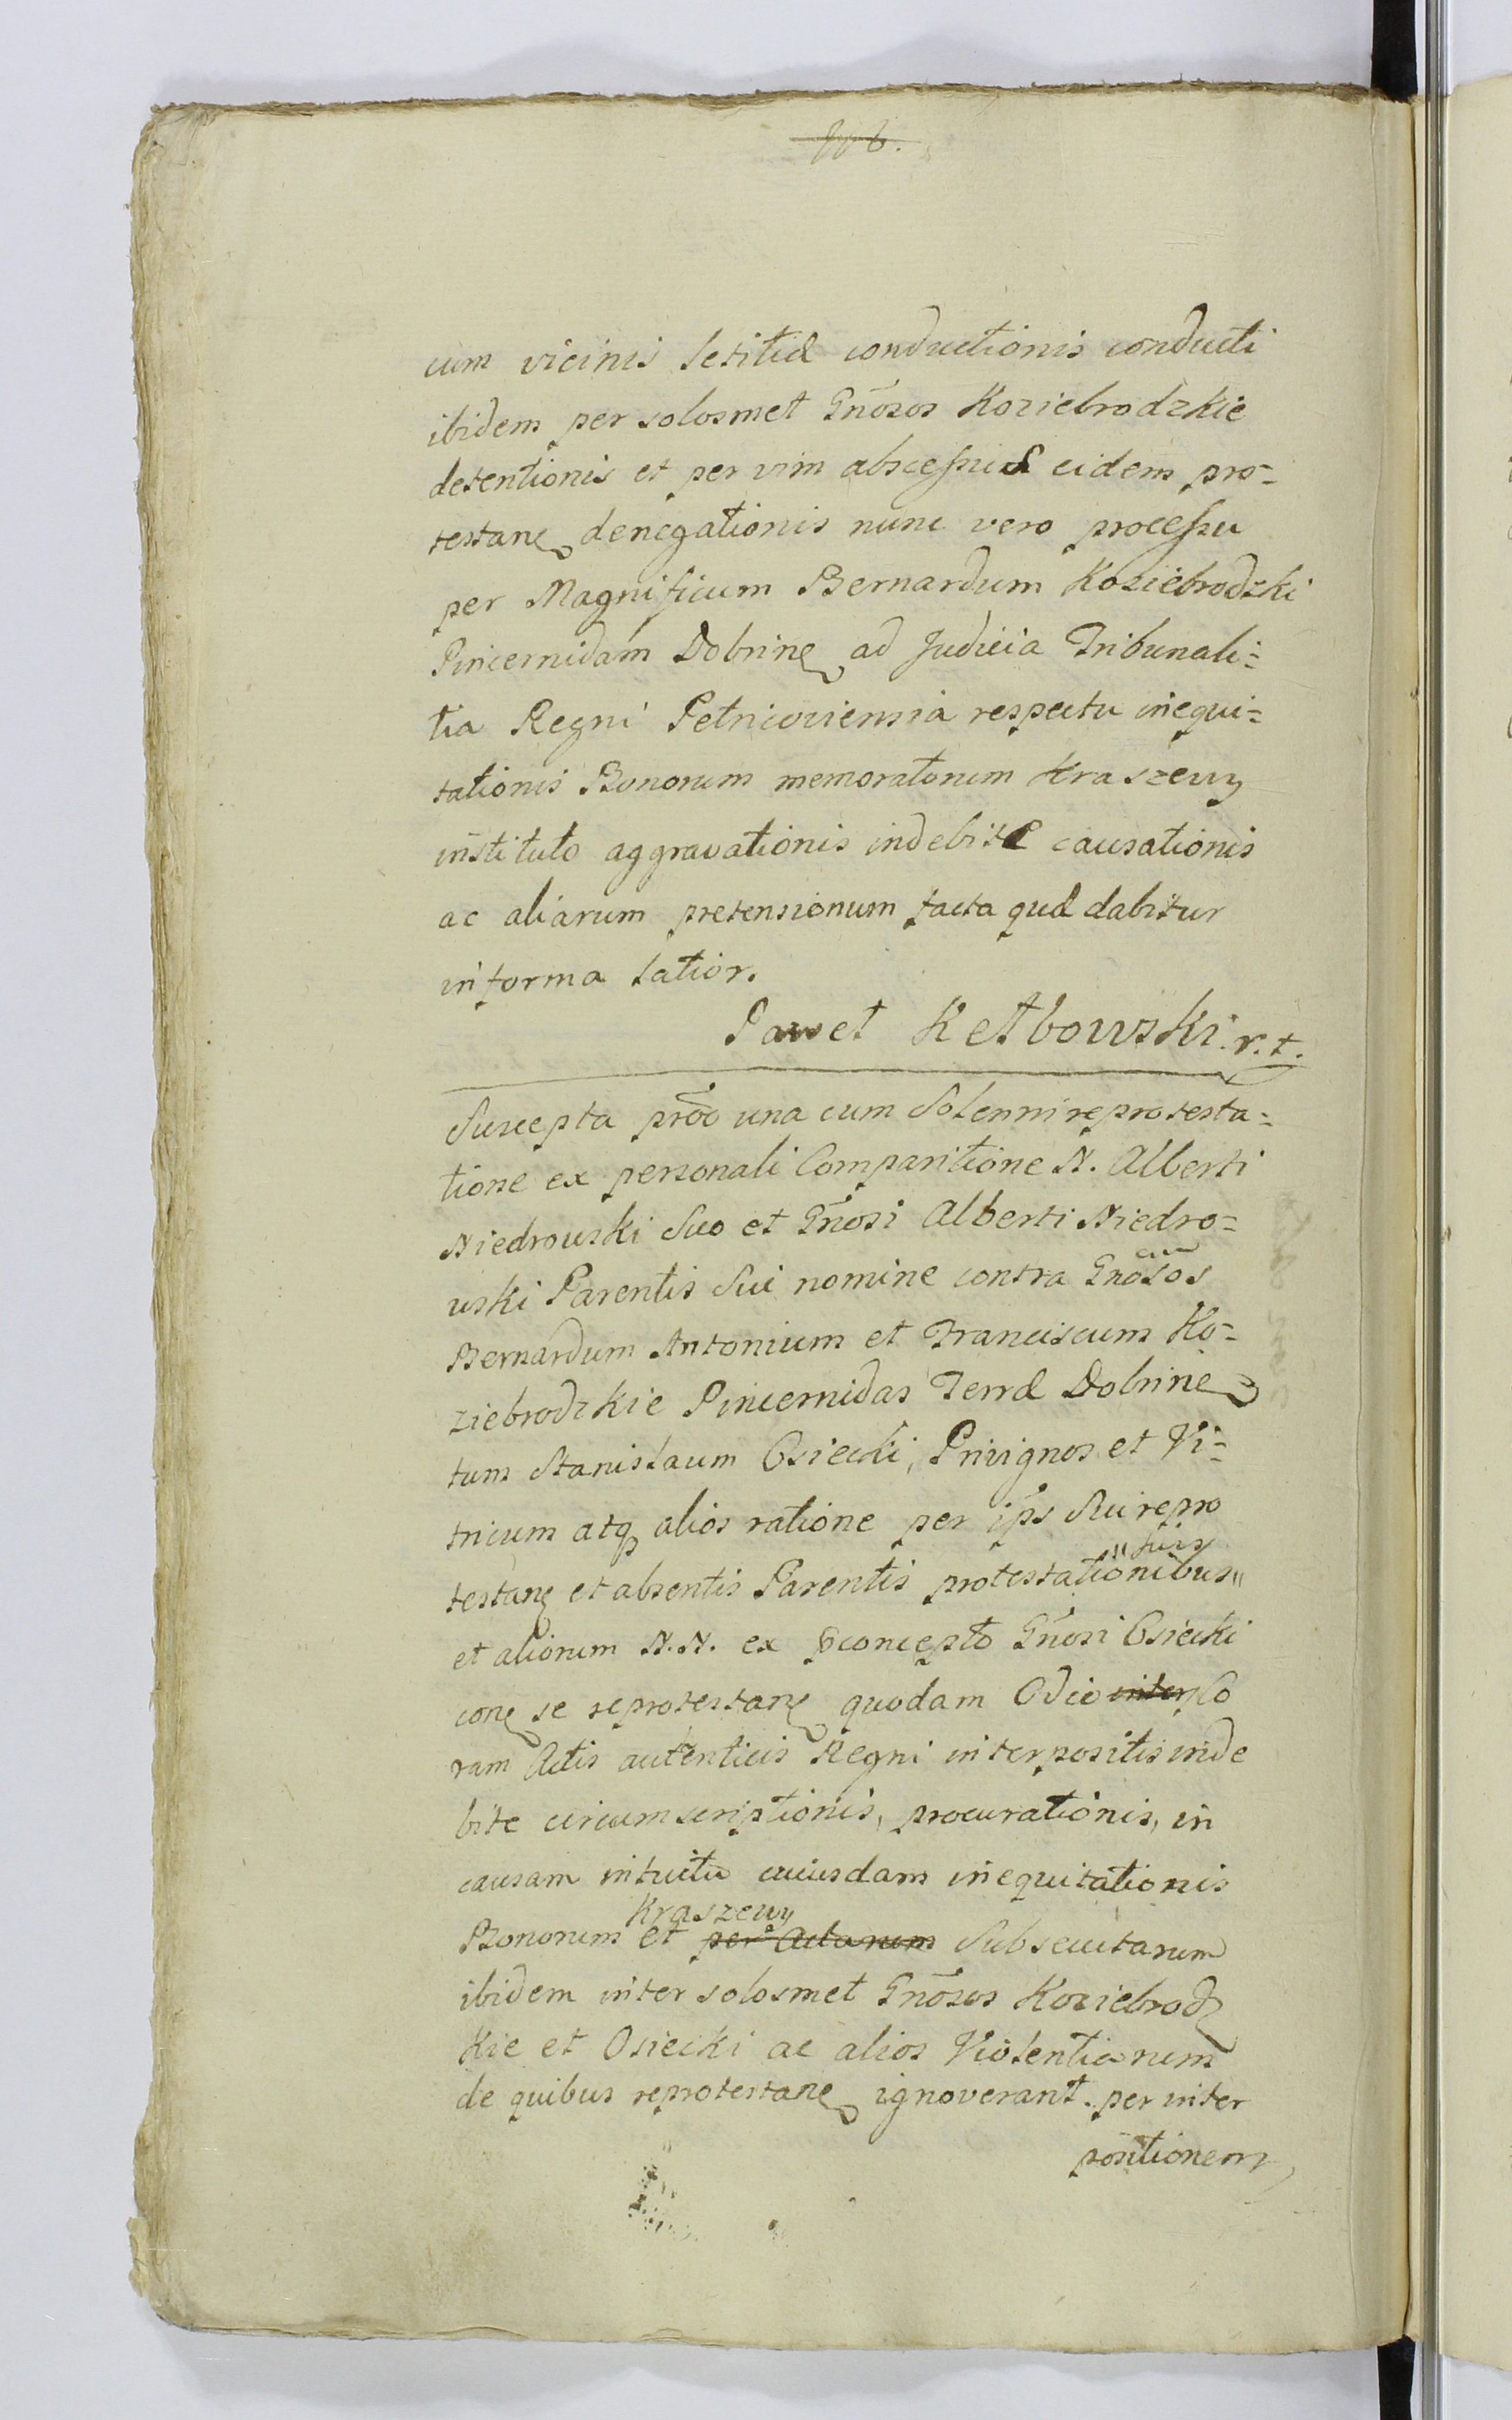 cum vicinis Sesitæ conductionis conducti
ibidem per solosmet Gñosos Koziebrodzkie
detentionis et per vim abscessus eidem pro=
testanę denegationis nunc vero processu
per Magnificum Bernardum Koziebrodzki
Pincernidam Dobrinę ad Judicia Tribunali=
tia Regni Petricoviensia respectu inequi=
tationis Bonorum memoratorum Kraszewy
instituto aggravationis indebitæ causationis
ac aliarum pretensionum facta quæ dabitur
in forma latior.
Paweł Kełbowski r. t.
Suscepta prõõ una cum Solenni reprotesta=
tione ex personali Comparitione N. Alberti
Niedrowski Suo et Gñosi Alberti Niedro=
wski Parentis Sui nomine contra Gñosos
Bernardum Antonium et Franciscum Ko=
ziebrodzkie Pincernidas Terræ Dobrinę
tum Stanislaum Osiecki, Privignos et Vi=
tricum atq alios ratione per ips Sui repro
testanę et absentis Parentis protestationibus "suis"
et aliorum N.N. ex pconcepto Gñosi Osiecki
conę se reprotestanę quodam Odio inter Co
ram Actis autenticis Regni interpositis inde
bite circumscriptionis, procurationis, in
causam intuitu cuiusdam inequitationis
Bonorum Kraszewy et per Actorum Subsecutarum
ibidem inter solosmet Gñosos Koziebrodz
kie et Osiecki ac alios Violentiarum
de quibus reprotestanę ignoverant. per inter
positionem